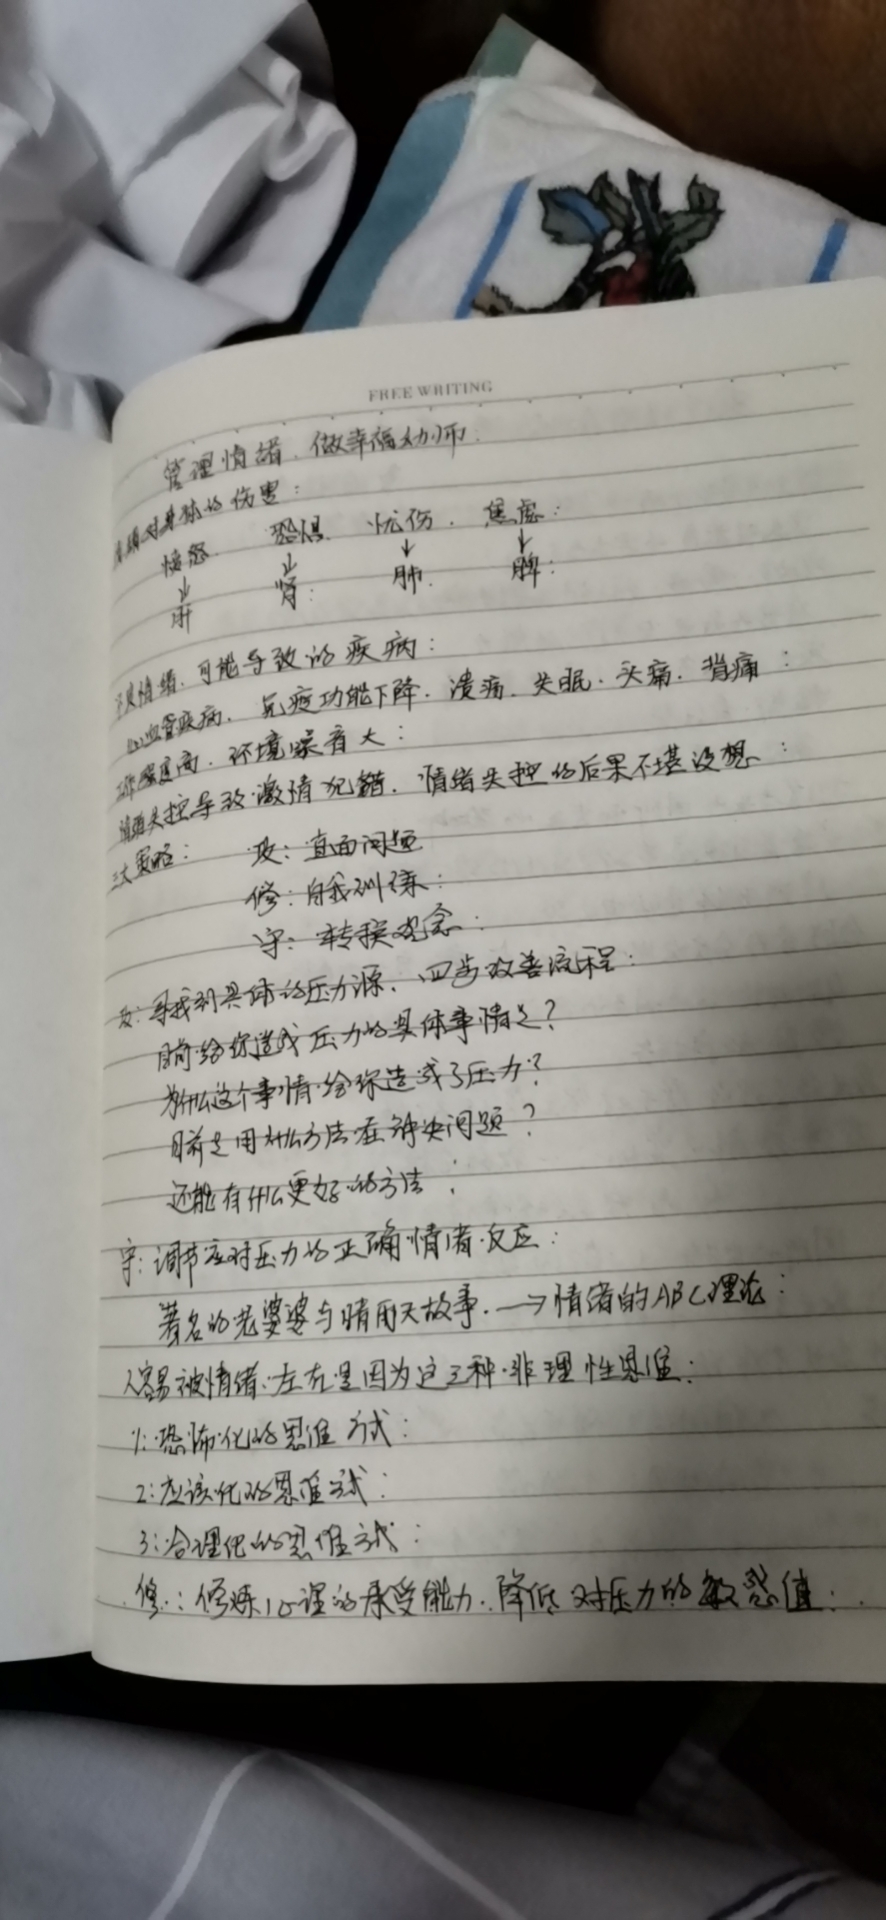 FREE WRITING
管理情绪.做幸福幼师.
情绪对身体的伤害:
愤怒. 恐惧. 忧伤. 焦虑:
↓ ↓ ↓ ↓
肝 肾: 肺. 脾:
不良情绪.可能导致的疾病:
心血管疾病.免疫功能下降.溃疡.失眠.头痛.背痛:
工作强度高.环境噪音大:
情绪失控导致激情犯错.情绪失控的后果不堪设想:
三大策略: 攻:直面问题
修:自我训练:
守:转换观念:
攻:寻找到具体的压力源.四步改善流程:
目前给你造成压力的具体事情是?
为什么这个事情给你造成了压力?
目前是用什么方法在解决问题?
还能有什么更好的方法:
守:调节应对压力的正确情绪反应:
著名的老婆婆与晴雨天故事.→情绪的ABC理论:
人容易被情绪左右是因为这三种非理性思维:
1:恐怖化的思维方式:
2:应该化的思维方式:
3:合理化的思维方式:
修:修炼心理的承受能力.降低对压力的敏感值: